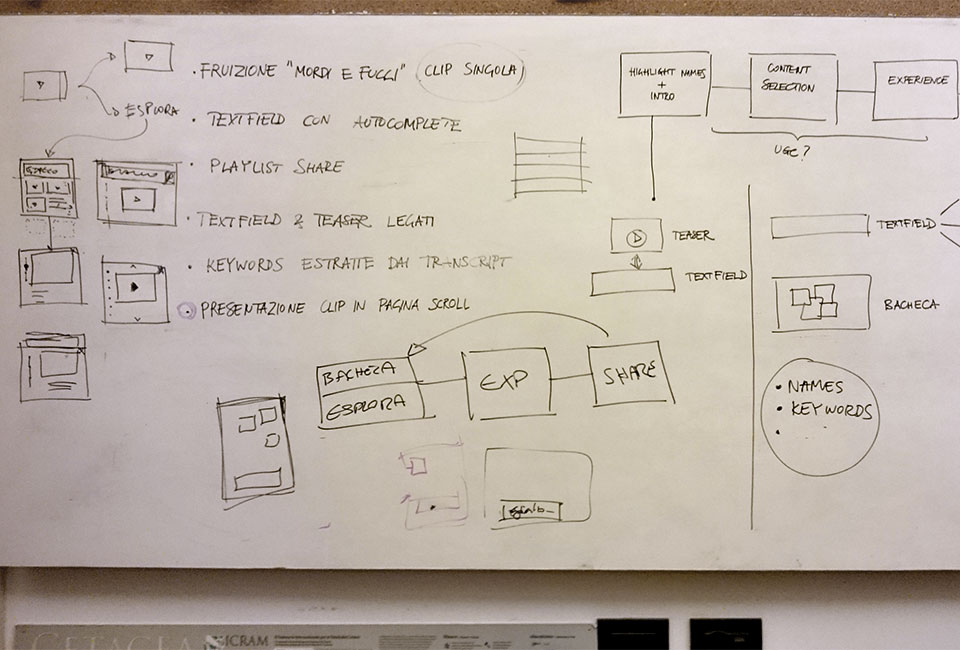 · FRUIZIONE "MORDI E FUGGI" CLIP SINGOLA
ESPLORA
· TEXTFIELD CON AUTOCOMPLETE
· PLAYLIST SHARE
· TEXTFIELD & TEASER LEGATI
· KEYWORDS ESTRATTE DAI TRANSCRIPT
· PRESENTAZIONE CLIP IN PAGINA SCROLL
HIGHLIGHT NAMES
+
INTRO
CONTENT
SELECTION
EXPERIENCE
UGC?
TEASER
TEXTFIELD
TEXTFIELD
BACHECA
• NAMES
• KEYWORDS
•
BACHECA
ESPLORA
EXP
SHARE
CETACEA
ICRAM